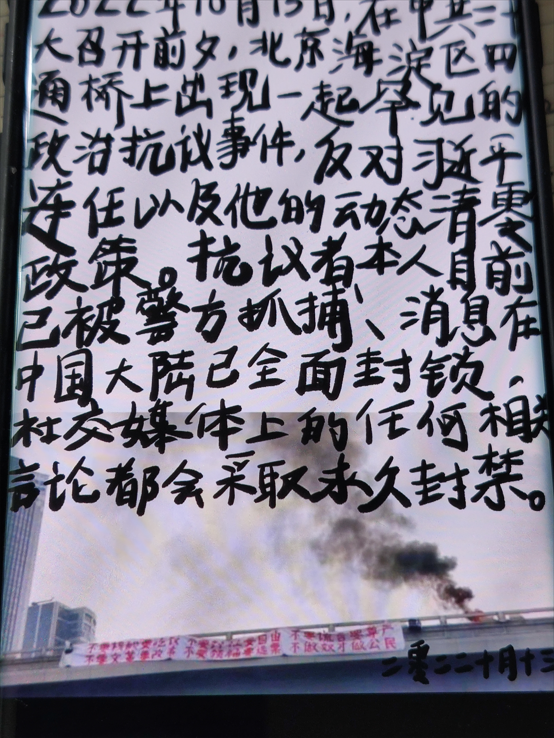 2022年10月13日，在中共二十
大召开前夕，北京海淀区四
通桥上出现一起罕见的
政治抗议事件，反对习近平
连任以及他的动态清零
政策。抗议者本人目前
已被警方抓捕、消息在
中国大陆已全面封锁，
社交媒体上的任何相关
言论都会采取永久封禁。
不要核酸要吃饭 不要封锁要自由 不要谎言要尊严
不要文革要改革 不要领袖要选票 不做奴才做公民
二零二二十月十三